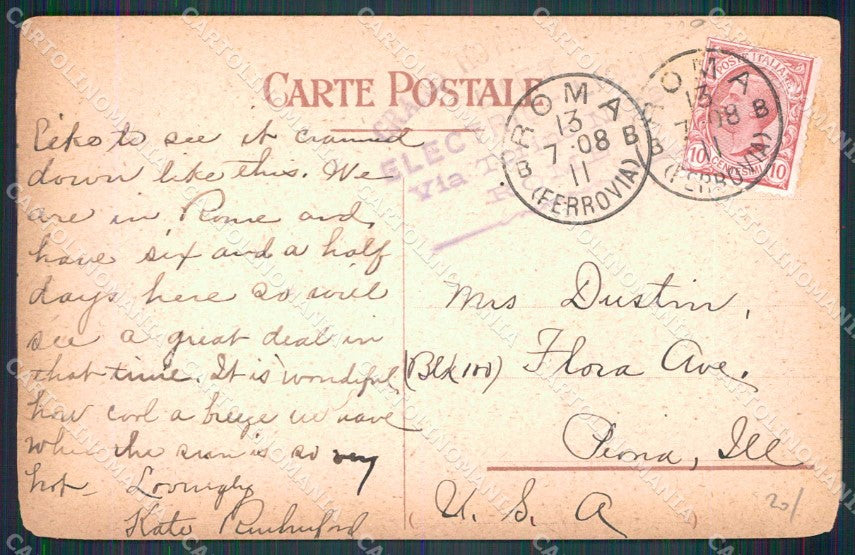 CARTE POSTALE
to see it crammed
down like this. We
are in Rome and
have six and a half
days here so will
see a great deal in
that time. It is wonderful
how cool a breeze we have
when the sun is so very
hot. Lovingly
Kate
ELECTRIC
Via
ROMA
13
7 · 08
B B
11
(FERROVIA)
ROMA
13
7 · 08
B B
11
(FERROVIA)
POSTE ITALIANE
10 10
Mrs Dustin,
(Blk 100) Flora Ave.
Peoria, Ill
U. S. A
20/
CARTOLINOMANIA